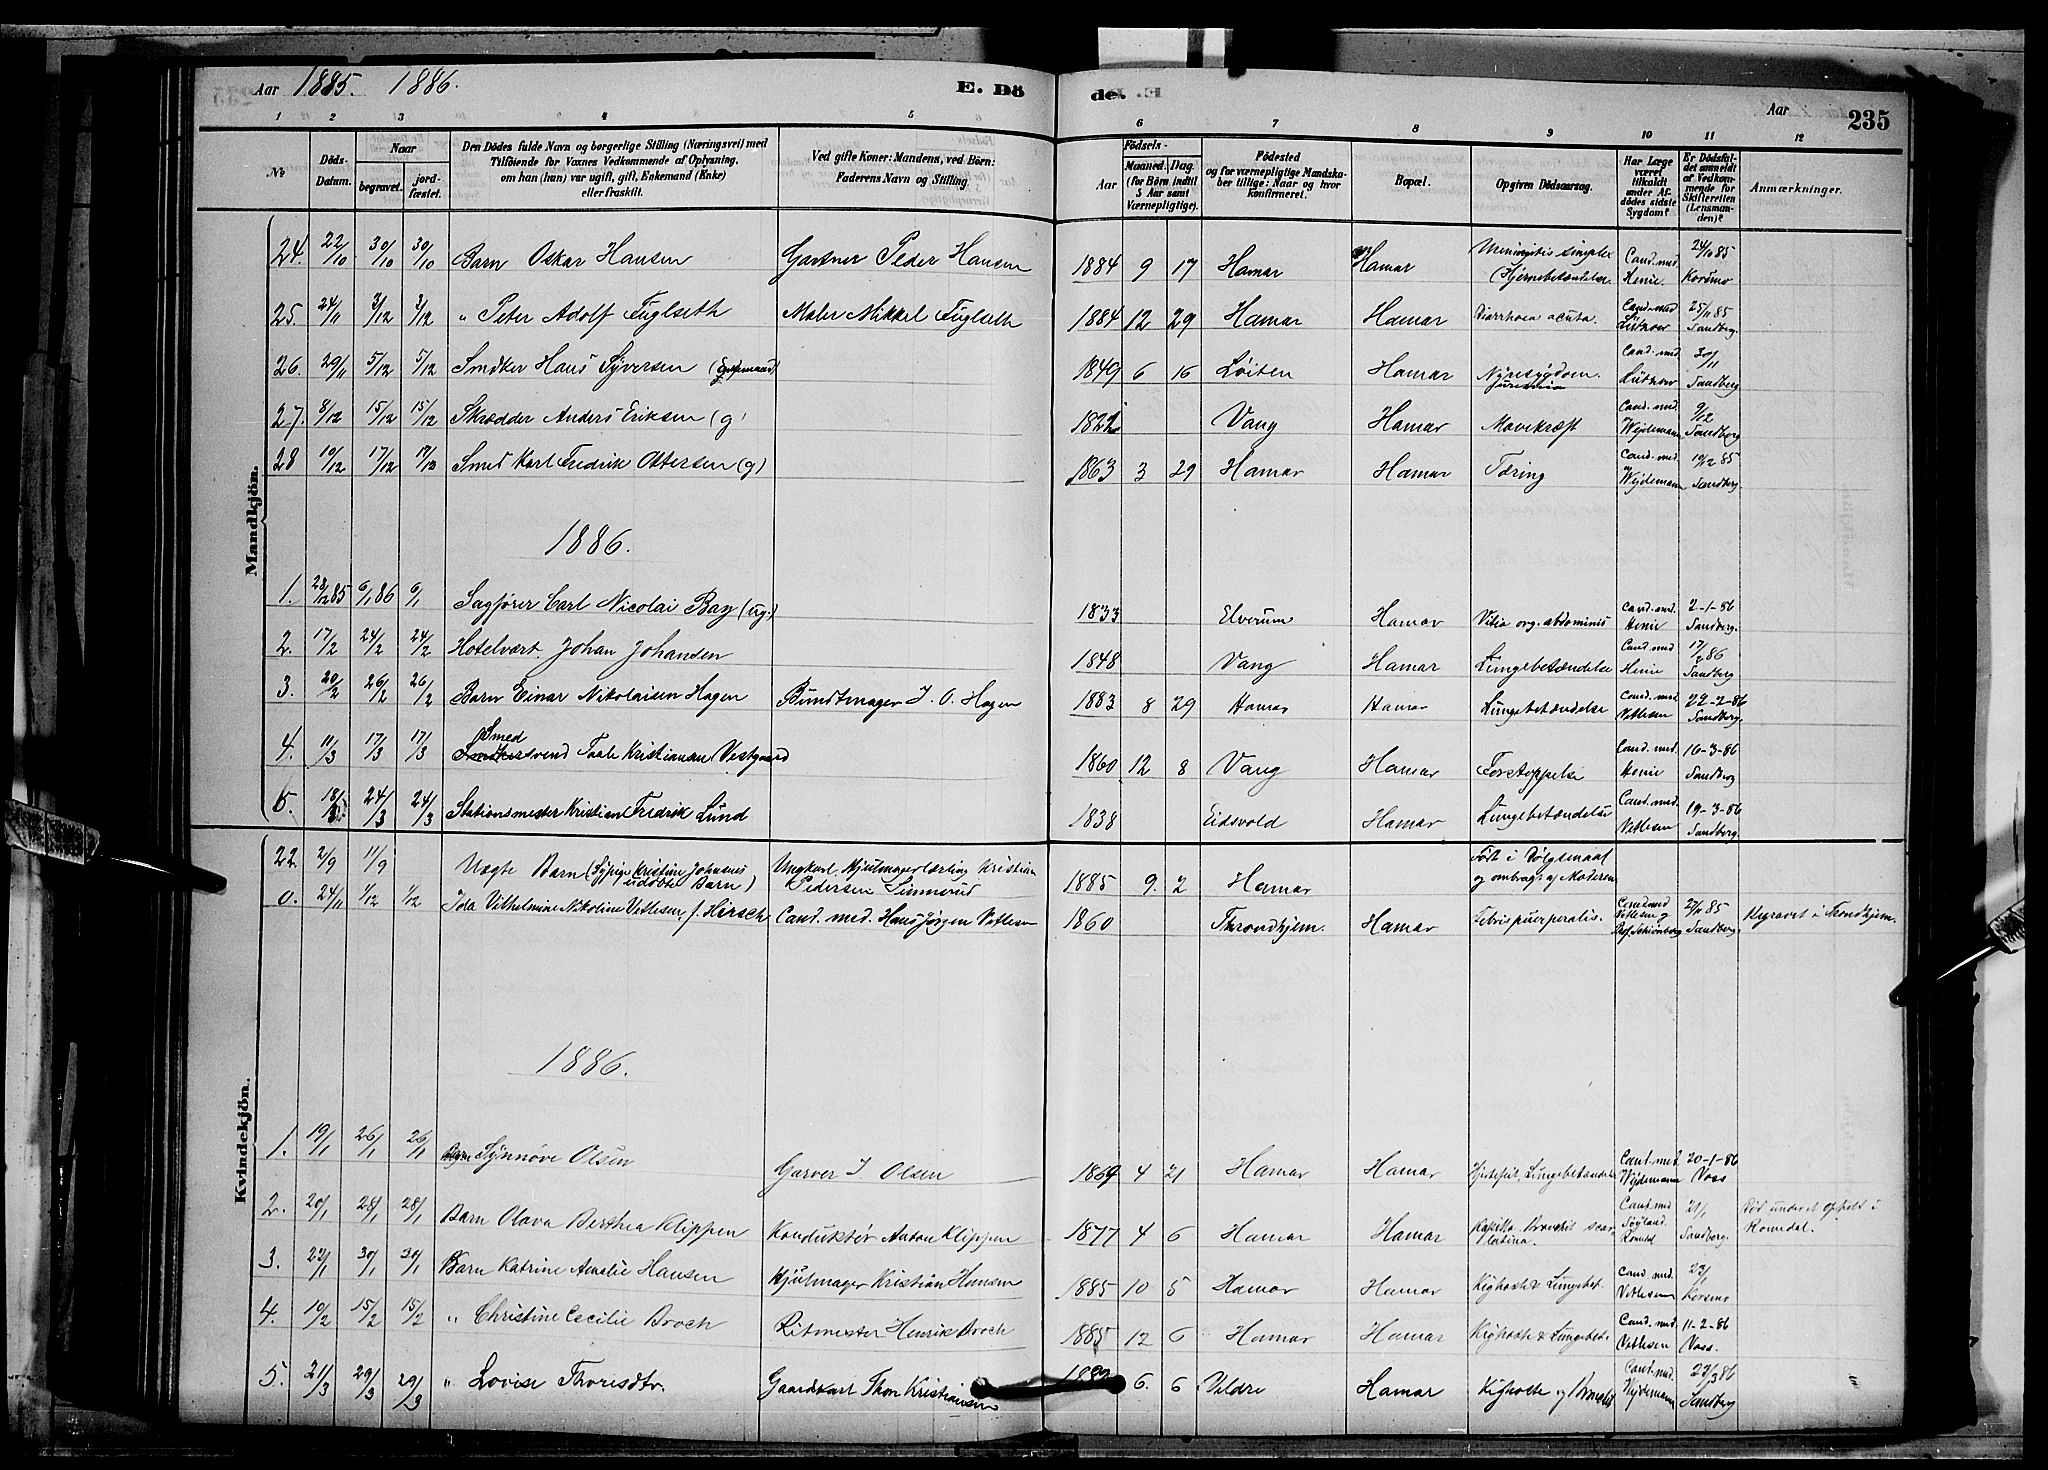 Aar 1885. 1886. E. Dö de. Aar 235
1 2 3 4 5 6 7 8 9 10 11 12
No Döds-Datum. Naar begravet. jord-fæstet. Den Dödes fulde Navn og borgerlige Stilling (Næringsvei) med Tilföiende for Voxnes Vedkommende af Oplysning, om han (hun) var ugift, gift, Enkemand (Enke) eller fraskilt. Ved gifte Koner: Mandens, ved Börn: Faderens Navn og Stilling. Födsels- Aar Maaned. Dag. (for Börn indtil 5 Aar samt Værnepligtige). Födested og for værnepligtige Mandskaber tillige: Naar og hvor konfirmeret. Bopæl. Opgiven Dödsaarsag. Har Læge været tilkaldt under Afdödes sidste Sygdom? Er Dödsfaldet anmeldt af Vedkommende for Skifteretten (Lensmanden)? Anmærkninger.
Mandkjön.
24. 22/10 30/10 30/10 Barn Oskar Hansen Gartner Peder Hansen 1884 9 17 Hamar Hamar Meningitis simplex (Hjernebetændelse Cand. med. Henie. 24/10 85 Korsmo
25. 24/11 3/12 3/12 " Peter Adolf Fuglseth Maler Mikkel Fuglseth 1884 12 29 Hamar Hamar Diarrhoea acuta. Cand. med Lützow 25/11 85 Sandberg.
26. 29/11 5/12 5/12 Snedker Hans Syversen 1849 6 16 Løiten Hamar Nyresygdom. Cand. med. Lützow 30/11 Sandberg
27. 8/12 15/12 15/12 Skrædder Anders Eriksen (g) 1822 Vang Hamar Mavekræft Cand. med. Wejdemann 9/12 Sandberg
28 10/12 17/12 17/12 Smed Karl Fredrik Ottersen (g) 1863 3 29 Hamar Hamar Tæring Cand. med. Wejdemann 10/12 85 Sandberg.
1886.
1. 28/12 85 6/1 86 6/1 Sagfører Carl Nicolai Bay (ug.) 1833 Elverum Hamar Vitia org. abdominis Cand. med. Henie 2-1-86 Sandberg.
2. 17/2 24/2 24/2 Hotelvært. Johan Johansen 1848 Vang Hamar Lungebetændelse Cand. med Henie 17/2 86 Sandberg
3. 20/2 26/2 26/2 Barn Einar Nikolaisen Hagen Bundtmager J. O. Hagen 1883 8 29 Hamar Hamar Lungebetændelse Cand. med Vetlesen 22-2-86 Sandberg.
4. 11/3 17/3 17/3 Smedsvend Taale Kristiansen Vestgaard 1860 12 8 Vang Hamar Forstoppelse Cand. med. Henie 16-3-86 Sandberg
5. 18/3 24/3 24/3 Stationsmester Kristian Fredrik Lund 1838 Eidsvold Hamar Lungebetændelse Cand. med. Vetlesen 19-3-86 Sandberg.
Kvindekjön.
22. 2/9 11/9 Uægte Barn (Sypige Kristine Johansens udøbte Barn) Ungkarl. Hjulmagerlærling Kristian Pedersen 1885 9. 2 Hamar Født i Dølgsmaal og ombragt af Moderen
0. 24/11 1/12 1/12 Ida Vilhelmine Nikoline Vetlesen f. Hirsch Cand. med. Hans Jørgen Vetlesen 1860 Throndhjem. Hamar Febris puerperalis. Cand. med Vetlesen og Prof. Schiønberg 27/11 85 Sandberg. Begravet i Trondhjem.
1886.
1. 19/1 26/1 26/1 Synnøve Olsen Garver J. Olsen 1869 4 21 Hamar Hamar Hjertefeil, Lungebetændelse Cand. med Wejdemann 20-1-86 Voss
2. 20/1 28/1 28/1 Barn Olava Berthea Klippen Konduktør Anton Klippen 1877 4 6 Hamar Hamar scarlatina. Cand. med Romedal 21/1 Sandberg. Død under et Ophold i Romedal.
3. 22/1 30/1 30/1 Barn Katrine Amalie Hansen Hjulmager Kristian Hansen 1885 10 5 Hamar Hamar Kighoste & Lungebet. Cand. med. Vetlesen 23/1 Korsmo
4. 10/2 15/2 15/2 " Christine Cecilie Broch Ritmester Henrik Broch 1885 12 6 Hamar Hamar Kighoste & Lungebet. Cand. med. Vetlesen 11-2-86 Voss.
5. 21/3 29/3 29/3 " Lovise Thoresdtr. Gaardskarl Thor Kristiansen 6. 6 Veldre Hamar Kighoste og Cand. med. Wejdemann 23/3 86 Sandberg